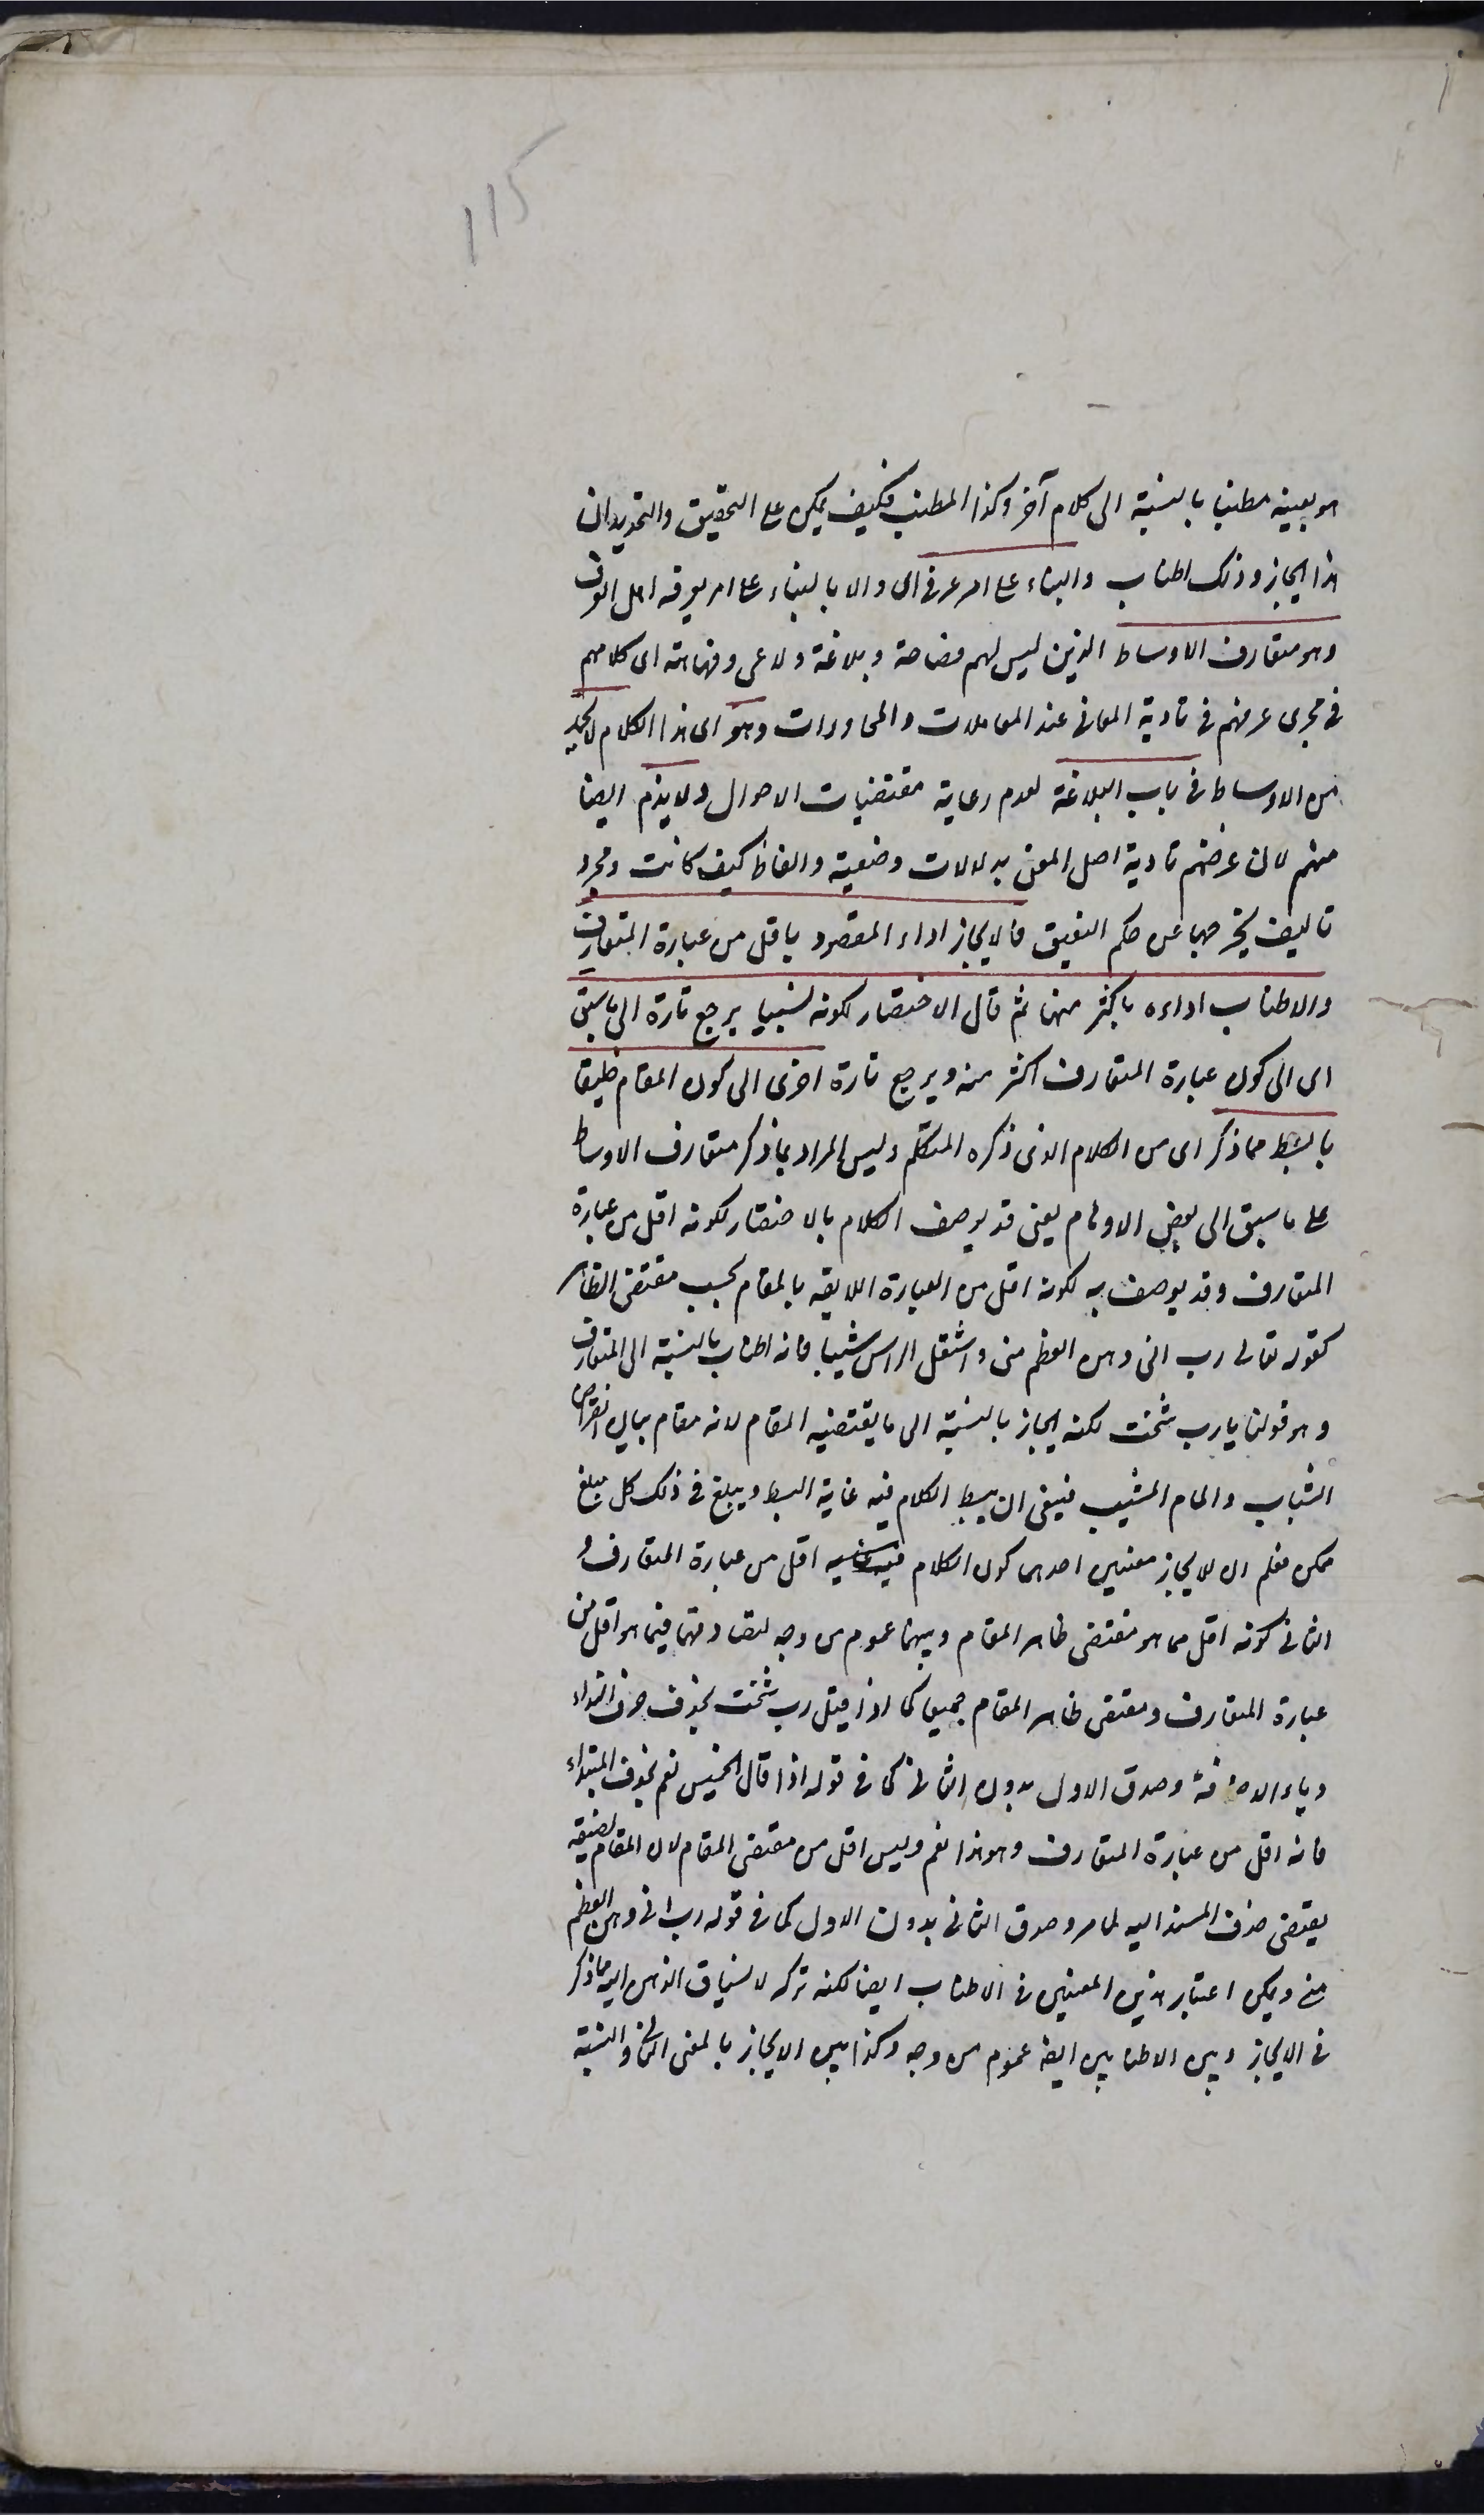 115
هو بعينه مطنبا بالنسبة الى كلام آخر وكذا المطنب فكيف يمكن على التحقيق والتحديد ان
هذا ايجاز وذلك اطناب والبناء على امر عرفى اى والا بالبناء على امر يعرفه اهل العرف
وهو متعارف الاوساط الذين ليس لهم فصاحة وبلاغة ولا عى وفهاهة اى كلامهم
فى مجرى عرفهم فى تادية المعانى عند المعاملات والمحاورات وهو اى هذا الكلام لا يحمد
من الاوساط فى باب البلاغة لعدم رعاية مقتضيات الاحوال ولا يذم ايضا
منهم لان غرضهم تادية اصل المعنى بدلالات وضعية والفاظ كيف كانت ومجرد
تاليف يخرجها عن حكم النعيق فالايجاز اداء المقصود باقل من عبارة المتعارف
والاطناب اداءه باكثر منها ثم قال الاختصار لكونه نسبيا يرجع تارة الى ما سبق
اى الى كون عبارة المتعارف اكثر منه ويرجع تارة اخرى الى كون المقام خليقا
بابسط مما ذكر اى من الكلام الذى ذكره المتكلم وليس المراد بما ذكر متعارف الاوساط
على ما سبق الى بعض الاوهام يعنى قد يوصف الكلام بالاختصار لكونه اقل من عبارة
المتعارف وقد يوصف به لكونه اقل من العبارة اللايقة بالمقام بحسب مقتضى الظاهر
كقوله تعالى رب انى وهن العظم منى واشتعل الراس شيبا فانه اطناب بالنسبة الى المتعارف
وهو قولنا يارب شخت لكنه ايجاز بالنسبة الى ما يقتضيه المقام لانه مقام بيان انقراض
الشباب والمام المشيب فينبغى ان يبسط الكلام فيه غاية البسط ويبلغ فى ذلك كل مبلغ
ممكن فعلم ان للايجاز معنيين احدهما كون الكلام اقل من عبارة المتعارف و
الثانى كونه اقل مما هو مقتضى ظاهر المقام وبينهما عموم من وجه لتصادقهما فيما هو اقل من
عبارة المتعارف ومقتضى ظاهر المقام جميعا كما اذا قيل رب شخت بحذف حرف النداء
وياء الاضافة وصدق الاول بدون الثانى كما فى قوله اذا قال الخميس نعم بحذف المبتداء
فانه اقل من عبارة المتعارف وهو هذا نعم وليس اقل من مقتضى المقام لان المقام لضيقه
يقتضى حذف المسند اليه لما مر وصدق الثانى بدون الاول كما فى قوله رب انى وهن العظم
منى ويمكن اعتبار هذين المعنيين فى الاطناب ايضا لكنه تركه لانسياق الذهن اليه مما ذكر
فى الايجاز وبين الاطنابين ايضا عموم من وجه وكذا بين الايجاز بالمعنى الثانى والنسبة